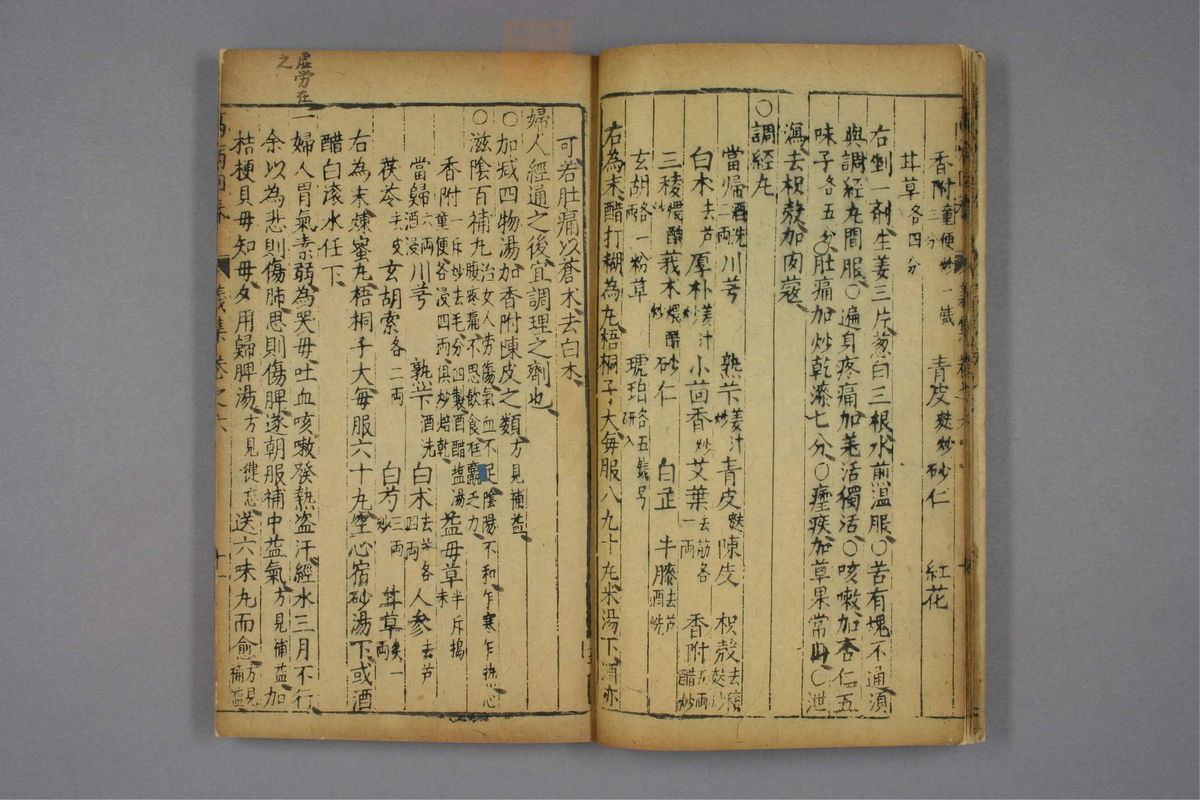 香附童便炒三分一錢 青皮麩炒 砂仁 紅花
甘草各四分
右剉一劑生姜三片葱白三根水煎温服〇苦有塊不通湏
與調經丸間服〇遍身疼痛加羌活獨活〇咳嗽加杏仁五
味子各五分〇肚痛加炒乾漆七分〇瘧疾加草果常山〇泄
瀉去枳殼加肉蔻
〇調經丸
當帰酒洗二兩 川芎 熟芐姜汁炒 青皮麩 陳皮 枳殼去穰麩炒
白术去芦 厚朴姜汁炒 小茴香炒 艾葉去筋各一兩 香附五兩醋炒
三稜煨醋炒 莪术煨醋炒 砂仁 白芷 牛膝去芦酒洗
玄胡各一兩 粉草 琥珀各五錢另研入
右為末醋打糊為丸梧桐子大每服八九十丸米湯下酒亦
可若肚痛以蒼术去白术
婦人經通之後宜調理之劑也
〇加减四物湯加香附陳皮之類方見補益
〇滋陰百補丸治女人劳傷氣血不足陰陽不和乍寒乍熱心腹疼痛不思飲食尫羸乏力
香附一斤炒去毛分四製酒醋盐湯童便各浸四兩俱炒焙乾 益母草半斤搗末
當歸六兩酒浸 川芎 熟芐酒洗 白术去芦各四兩 人參去芦
茯苓去皮 玄胡索各二兩 白芍三兩炒 甘草炙一兩
右為末煉蜜丸梧桐子大每服六十九空心宿砂湯下或酒
醋白滚水任下
一婦人胃氣素弱為哭母吐血咳嗽發熱盗汗經水三月不行
余以為悲則傷肺思則傷脾遂朝服補中益氣方見補益加
桔梗貝母知母夕用歸脾湯方見健忘送六味丸而愈方見補益
虛劳在
之